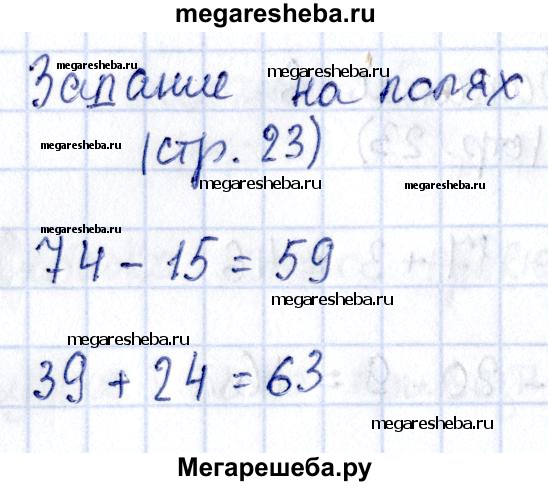 megaresheba.ru
megaresheba.ru
megaresheba.ru
Задание на полях
megaresheba.ru
(стр. 23)
megaresheba.ru
megaresheba.ru
megaresheba.ru
74 - 15 = 59
megaresheba.ru
megaresheba.ru
39 + 24 = 63
megaresheba.ru
Мегарешеба.ру